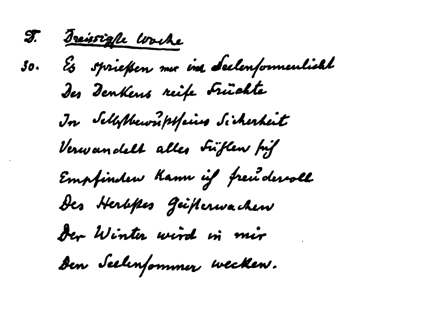 D. Dreissigste Woche
30. Es spriessen mir im Seelensonnenlicht
Des Denkens reife Früchte
In Selbstbewußtseins Sicherheit
Verwandelt alles Fühlen sich
Empfinden kann ich freudevoll
Des Herbstes Geisterwachen
Der Winter wird in mir
Den Seelensommer wecken.